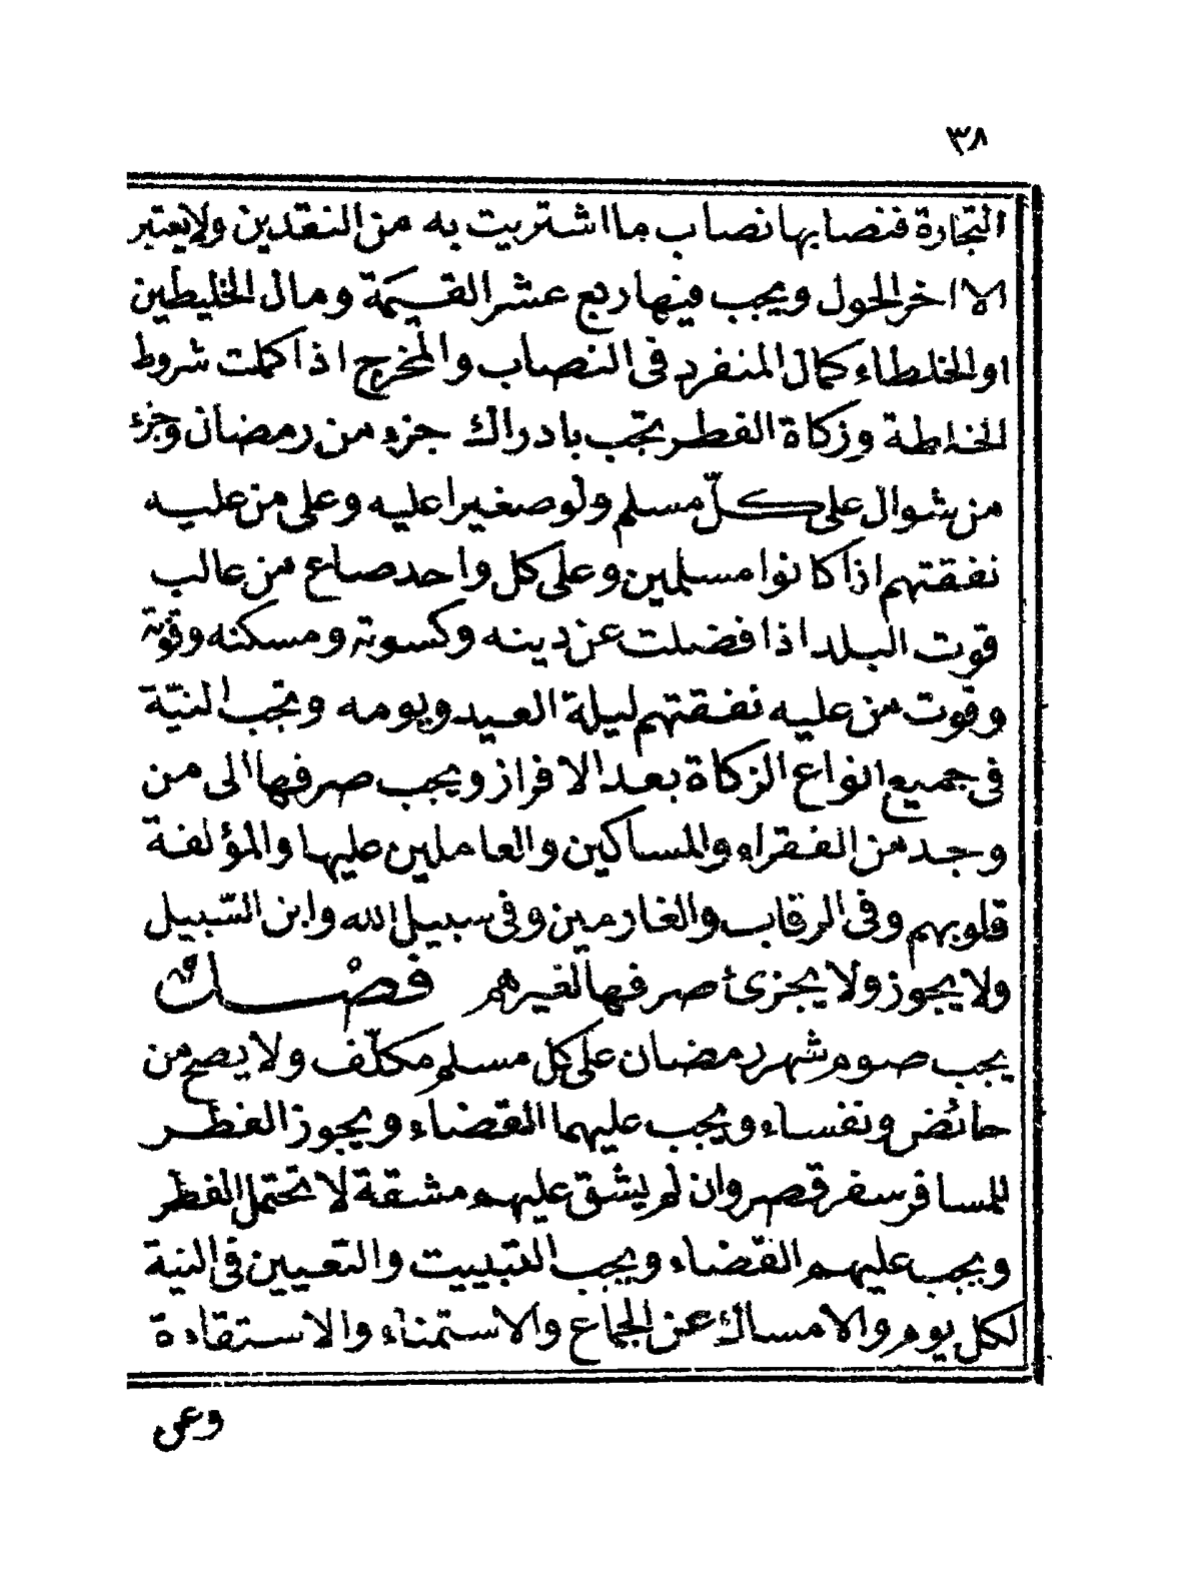 ٣٨
التجارة فنصابها نصاب ما اشتريت به من النقدين ولا يعتبر
الا اخر الحول ويجب فيها ربع عشر القيمة ومال الخليطين
او الخلطاء كمال المنفرد فى النصاب والمخرج اذا كملت شروط
الخلطة وزكاة الفطر تجب بادراك جزء من رمضان وجزء
من شوال على كلّ مسلم ولو صغيرا عليه وعلى من عليه
نفقتهم اذا كانوا مسلمين وعلى كل واحد صاع من غالب
قوت البلد اذا فضلت عن دينه وكسوته ومسكنه وقوته
وقوت من عليه نفقتهم ليلة العيد ويومه وتجب النيّة
فى جميع انواع الزكاة بعد الافراز ويجب صرفها الى من
وجد من الفقراء والمساكين والعاملين عليها والمؤلفة
قلوبهم وفى الرقاب والغارمين وفى سبيل الله وابن السّبيل
ولا يجوز ولا يجزئ صرفها لغيرهم فصل
يجب صوم شهر رمضان على كل مسلم مكلّف ولا يصح من
حائض ونفساء ويجب عليهما القضاء ويجوز الفطر
للمسافر سفر قصر وان لم يشق عليهم مشقة لا تحتمل الفطر
ويجب عليهم القضاء ويجب التبييت والتعيين فى النية
لكل يوم والامساك عن الجماع والاستمناء والاستقاءة
وعن